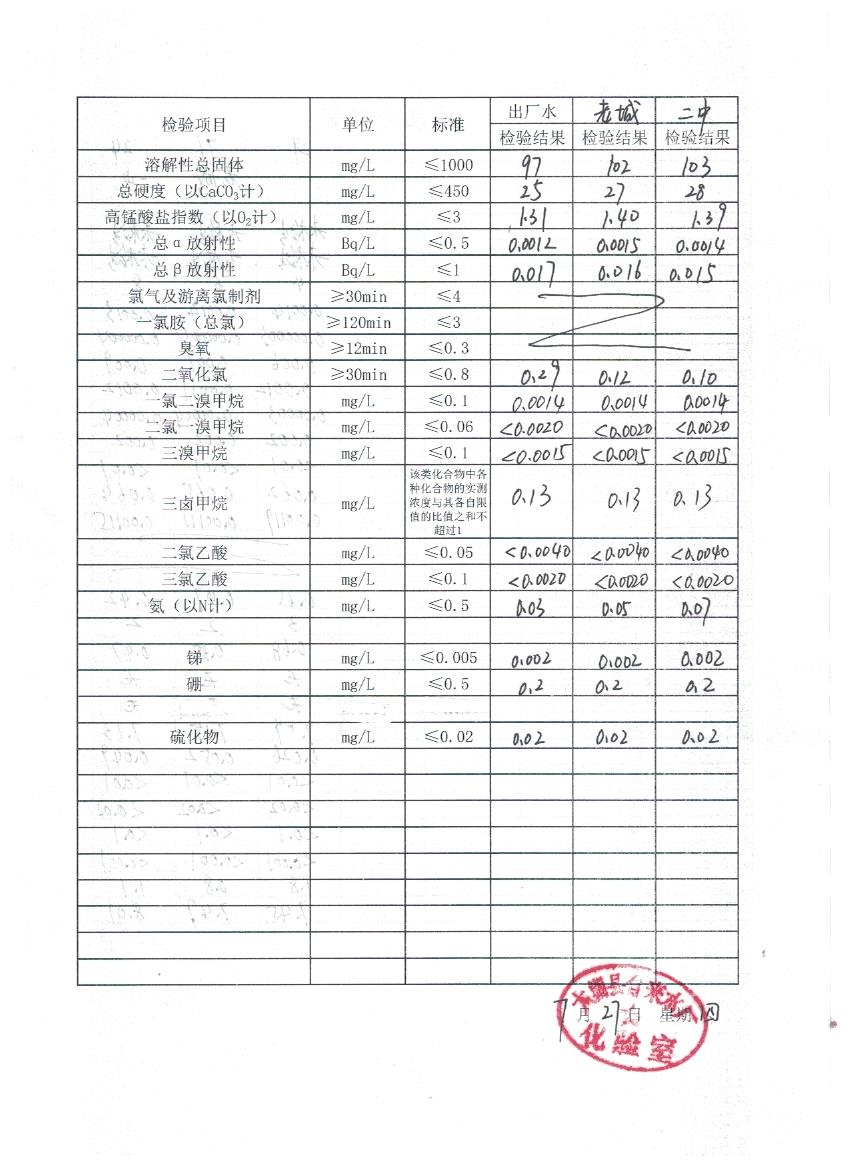 检验项目 单位 标准 出厂水 老城 二中
检验结果 检验结果 检验结果
溶解性总固体 mg/L ≤1000 97 102 103
总硬度（以CaCO₃计） mg/L ≤450 25 27 28
高锰酸盐指数（以O₂计） mg/L ≤3 1.31 1.40 1.39
总α放射性 Bq/L ≤0.5 0.0012 0.0015 0.0014
总β放射性 Bq/L ≤1 0.017 0.016 0.015
氯气及游离氯制剂 ≥30min ≤4
一氯胺（总氯） ≥120min ≤3
臭氧 ≥12min ≤0.3
二氧化氯 ≥30min ≤0.8 0.29 0.12 0.10
一氯二溴甲烷 mg/L ≤0.1 0.0014 0.0014 0.0014
二氯一溴甲烷 mg/L ≤0.06 <0.0020 <0.0020 <0.0020
三溴甲烷 mg/L ≤0.1 <0.0015 <0.0015 <0.0015
三卤甲烷 mg/L 该类化合物中各
种化合物的实测
浓度与其各自限
值的比值之和不
超过1
0.13 0.13 0.13
二氯乙酸 mg/L ≤0.05 <0.0040 <0.0040 <0.0040
三氯乙酸 mg/L ≤0.1 <0.0020 <0.0020 <0.0020
氨（以N计） mg/L ≤0.5 0.03 0.05 0.07
锑 mg/L ≤0.005 0.002 0.002 0.002
硼 mg/L ≤0.5 0.2 0.2 0.2
硫化物 mg/L ≤0.02 0.02 0.02 0.02
县自来水厂
7月27日 星期四
化验室